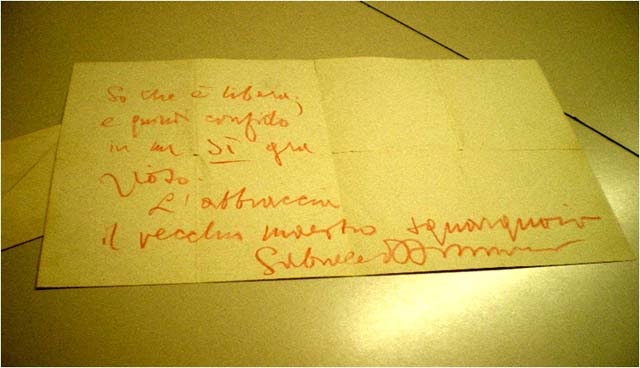 So che è libera;
e quindi confido
in un SÌ gra
zioso.
L'abbraccia
il vecchio maestro squarquoio
Gabriele d'Annunzio